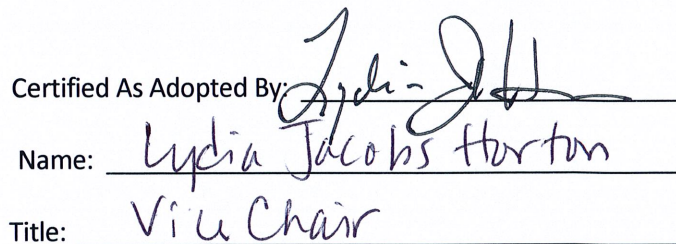 Certified As Adopted By: Lydia JH
Name: Lydia Jacobs Horton
Title: Vice Chair